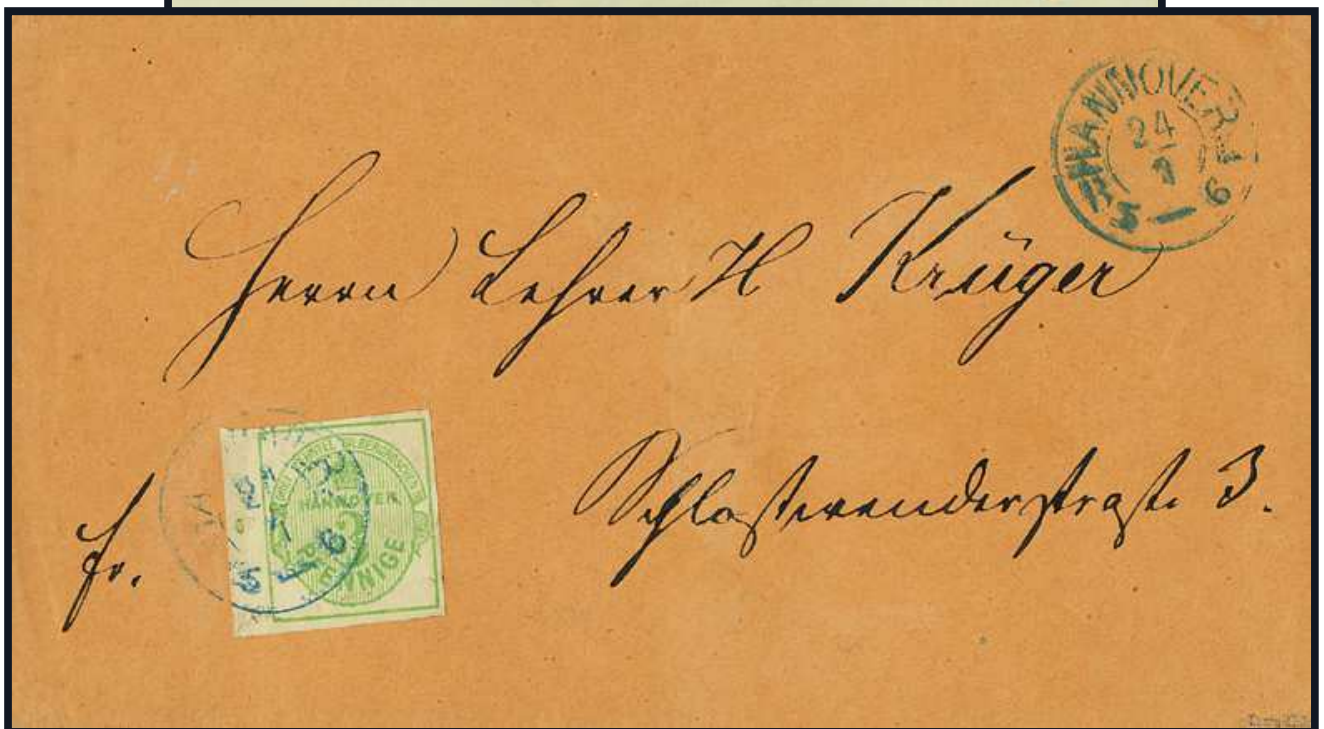 HANNOVER
24
1
5 — 6
Herrn Lehrer H Krüger
Schloßwenderstraße 3.
fr.
24
5 — 6
HANNOVER
PFENNIGE